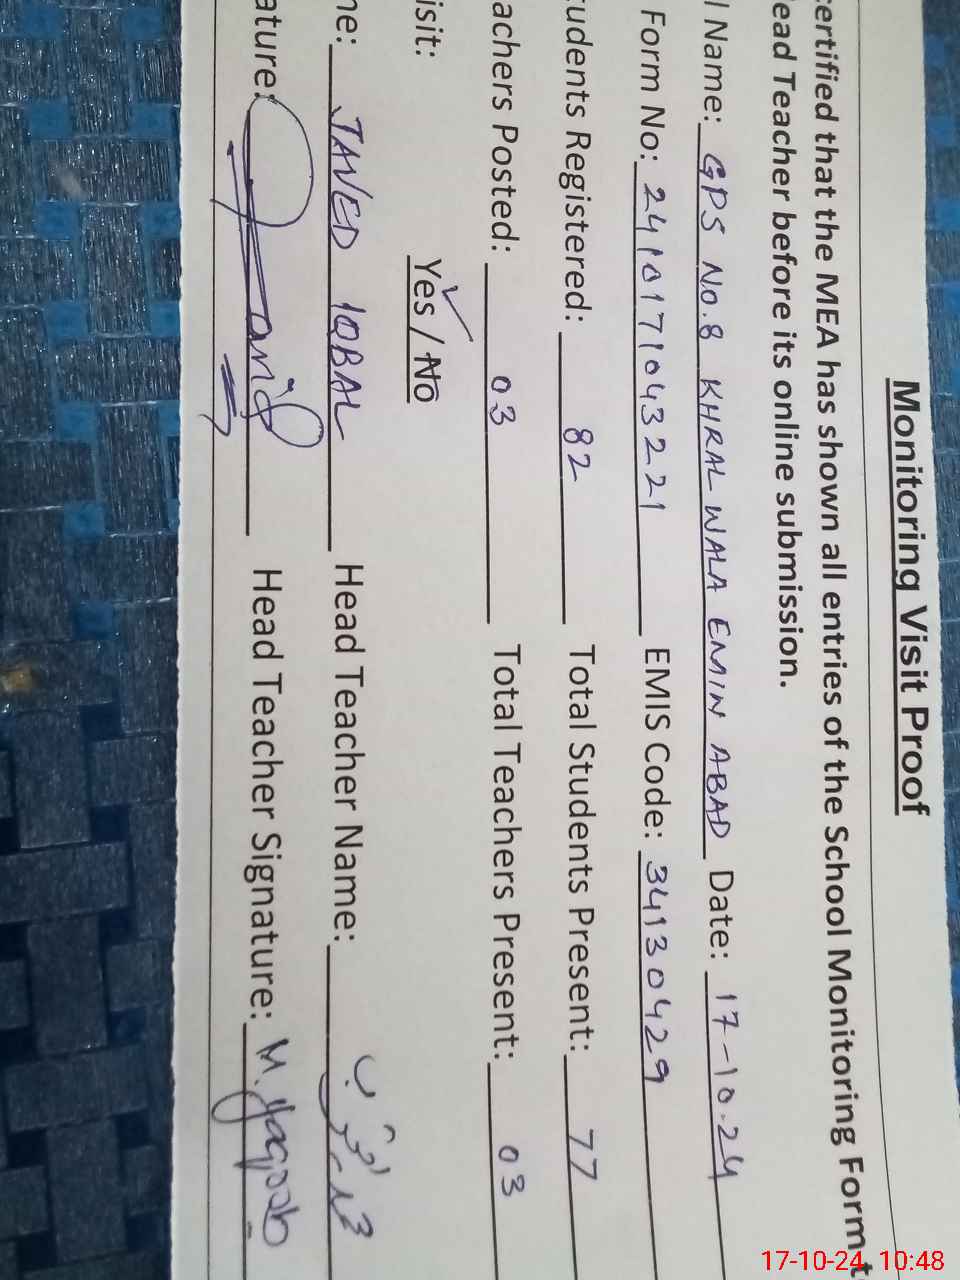 Monitoring Visit Proof
ertified that the MEA has shown all entries of the School Monitoring Form t
ead Teacher before its online submission.
l Name: GPS No.8 KHRAL WALA EMIN ABAD Date: 17-10-24
Form No: 2410171043221 EMIS Code: 34130429
tudents Registered: 82 Total Students Present: 77
achers Posted: 03 Total Teachers Present: 03
isit: Yes / No
me: JAVED IQBAL Head Teacher Name:
ature: Head Teacher Signature: M. Yaqoob
17-10-24 10:48